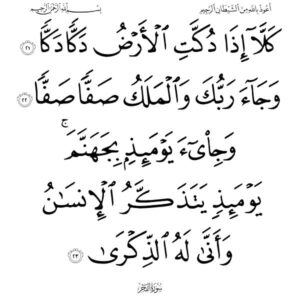 أعوذ بالله من الشيطان الرجيم
بسم الله الرحمن الرحيم
كَلَّآ إِذَا دُكَّتِ ٱلۡأَرۡضُ دَكّٗا دَكّٗا ٢١
وَجَآءَ رَبُّكَ وَٱلۡمَلَكُ صَفّٗا صَفّٗا ٢٢
وَجِاْيٓءَ يَوۡمَئِذِۭ بِجَهَنَّمَۚ
يَوۡمَئِذٖ يَتَذَكَّرُ ٱلۡإِنسَٰنُ
وَأَنَّىٰ لَهُ ٱلذِّكۡرَىٰ ٢٣
سورة الفجر